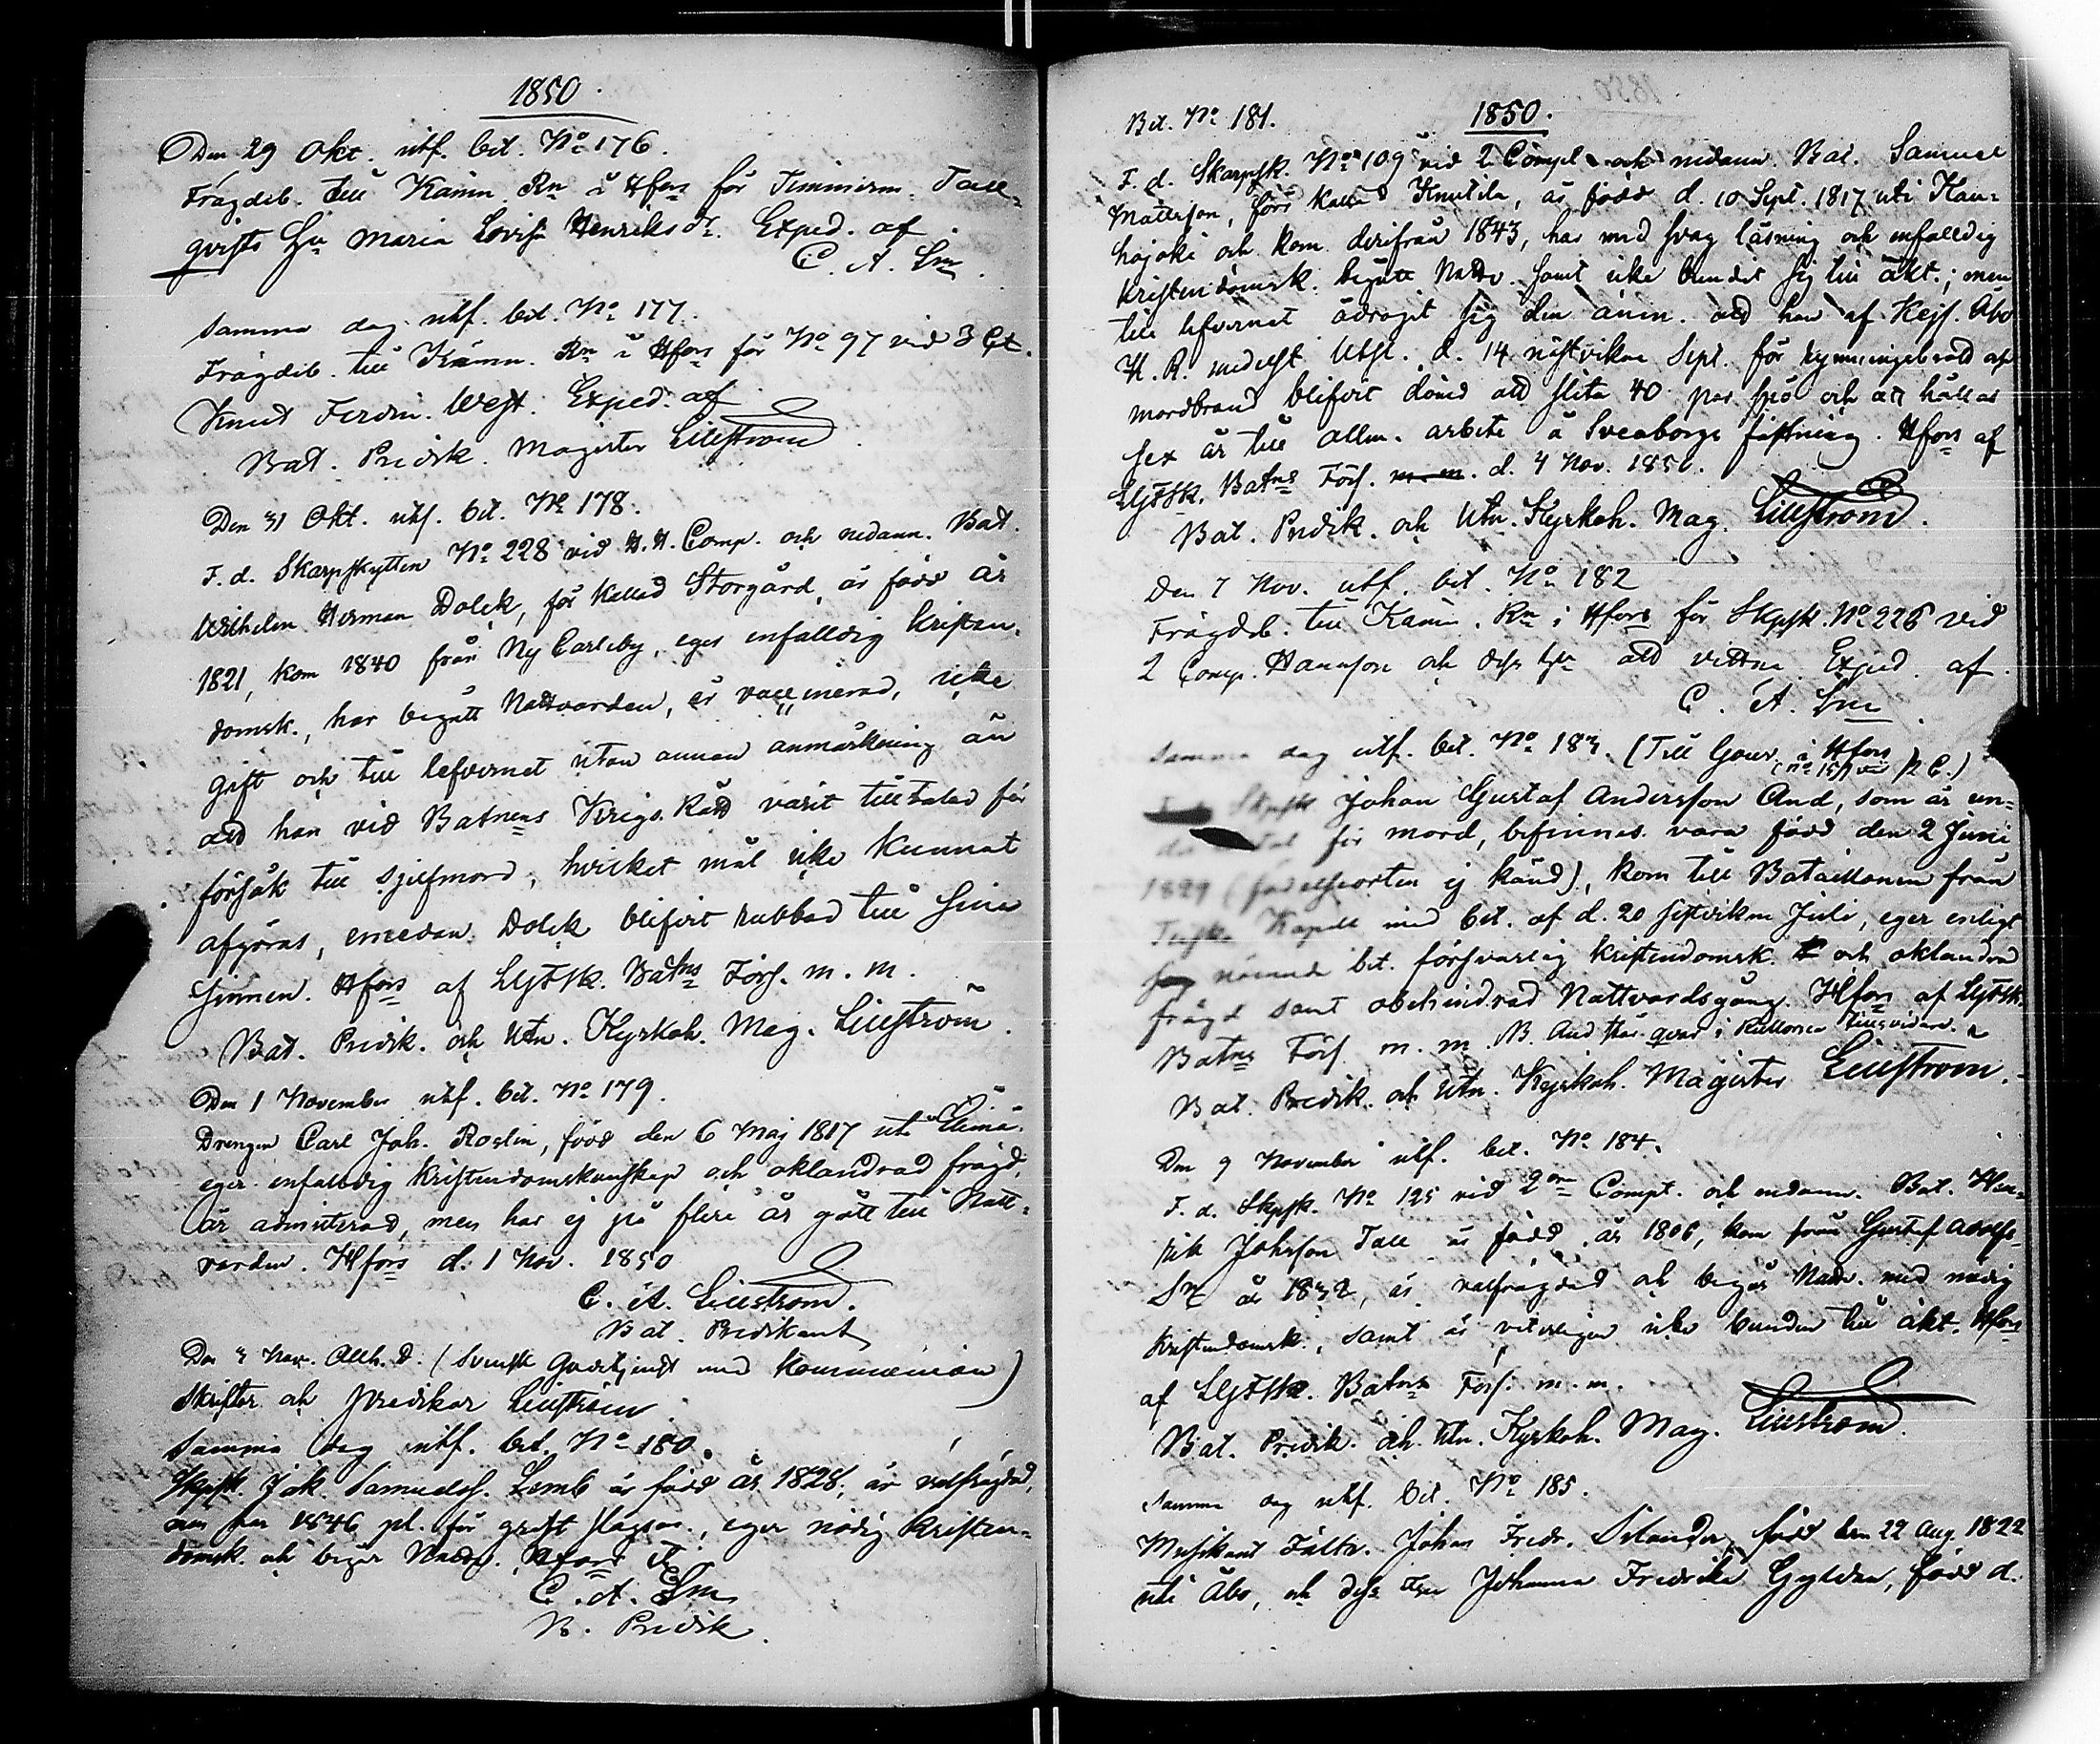 1850.
Den 29 Okt. utf. bet. No 176.
Frägdeb. till Kämn. Rn i Hfors för Timmerm. Tall-
qvists Hu Maria Lovisa Henriksdr. Exped. af
C. A. Lm
Samma dag utf. bet. No 177.
Frägdeb. till Kämn. Rn i Hfors för No 97 vid 3 Ct.
Knut Ferdin. West. Exped. af
Bat. Predik. Magister Lillström
Den 31 Okt. utf. bet. No 178.
F. d. Skarpskytten No 228 vid H. H. Comp. och nedann. Bat.
Wilhelm Herman Dolck, för kallad Storgård, är född år
1821, kom 1840 från Ny Carleby, eger enfalldig kristen-
domsk., har begått Nattvarden, är vaccinerad, icke
gift och till lefvernet utan annan anmärkning än
att han vid Batnens Krigs Rätt varit tilltalad för
försök till sjelfmord, hvilket mål icke kunnat
afgöras, emedan Dolck blifvit rubbad till sina
sinnen. Hfors af LGFSk. Batns Förs. m. m.
Bat. Predik. och Utn. Kyrkoh. Mag. Lillström.
Den 1 November utf. bet. No 179.
Drengen Carl Joh. Roslin, född den 6 Maj 1817 uti Elimä,
eger enfalldig kristendomskunskap och oklandrad frägd,
är admitterad, men har ej på flere år gått till Natt-
varden. Hfors d. 1 Nov. 1850
C. A. Lillström.
Bat. Predikant
Den 3 Nov. Allh. D. (Svensk Gudstjenst med Kommunion)
Skriftar och predikar Lillström
Samma dag utf. bet. No 180.
Skpsk. Jak. Samuelss. Lemb är född år 1828, är välfrägdad,
men har 1846 pl. för groft slagsm., eger nödig kristen-
domsk. och begår Nattv. Hfors
C. A. Lm
B. Predik.
Bet. No 181.
1850.
F. d. Skarpsk. No 109 vid 2 Comp. och nedann. Bat. Samuel
Mattsson, förr kallad Knutila, är född d. 10 Sept. 1817 uti Kau-
hajoki och kom derifrån 1843, har med svag läsning och enfalldig
kristendomsk. begått Nattv. samt icke bundit sig till äkt.; men
till lefvernet ådragit sig den anm. att han af Kejs. Åbo
H. R. medelst Utsl. d. 14 nästvikne Sept. för rymning
mordbrand blifvit dömd att slita 40 par spö och att hållas
sex år till allm. arbete å Sveaborgs fästning. Hfors af
LGFSk. Batns Förs. m. m. d. 4 Nov. 1850.
Bat. Predik. och Utn. Kyrkoh. Mag. Lillström.
Den 7 Nov. utf. bet. No 182
Frägdeb. till Kämn. Rn i Hfors för Skpsk. No 226 vid
2 Comp. Hansson och dess Hu att vittna. Exped. af
C. A. Lm
Samma dag utf. bet. No 183. (Till Guver. i Hfors
(No 157 vid 2 C.)
Skpsk Johan Gustaf Andersson And, som är un-
för mord, befinnes vara född den 2 Juni
1829 (födelseorten ej känd), kom till Bataillonen från
Kapell med bet. af d. 20 sistvikne Juli, eger enligt
nämnde bet. försvarlig kristendomsk. och oklandrad
frägd samt obehindrad Nattvardsgång. Hfors af LGFSk
Batns Förs. m. m. B. And står qvar i Rullorna tillsvidare.
Bat. Predik. och Utn. Kyrkoh. Magister Lillström.
Den 9 November utf. bet. No 184.
F. d. Skpsk. No 125 vid 2dra Compt. och nedann. Bat. Hen-
rik Johsson Tall är född år 1806, kom från Gustaf Adolfs
Sn år 1832, är välfrägdad och begår Nattv. med nödig
kristendomsk., samt är vitterligen icke bunden till äkt. Hfors
af LGFSk. Batns Förs. m. m.
Bat. Predik. och Utn. Kyrkoh. Mag. Lillström.
Samma dag utf. bet. No 185.
Musikant Fältv. Johan Fredr. Selander, född den 22 Aug. 1822
uti Åbo, och dess Hu Johanna Fredrika Gyldén, född d.